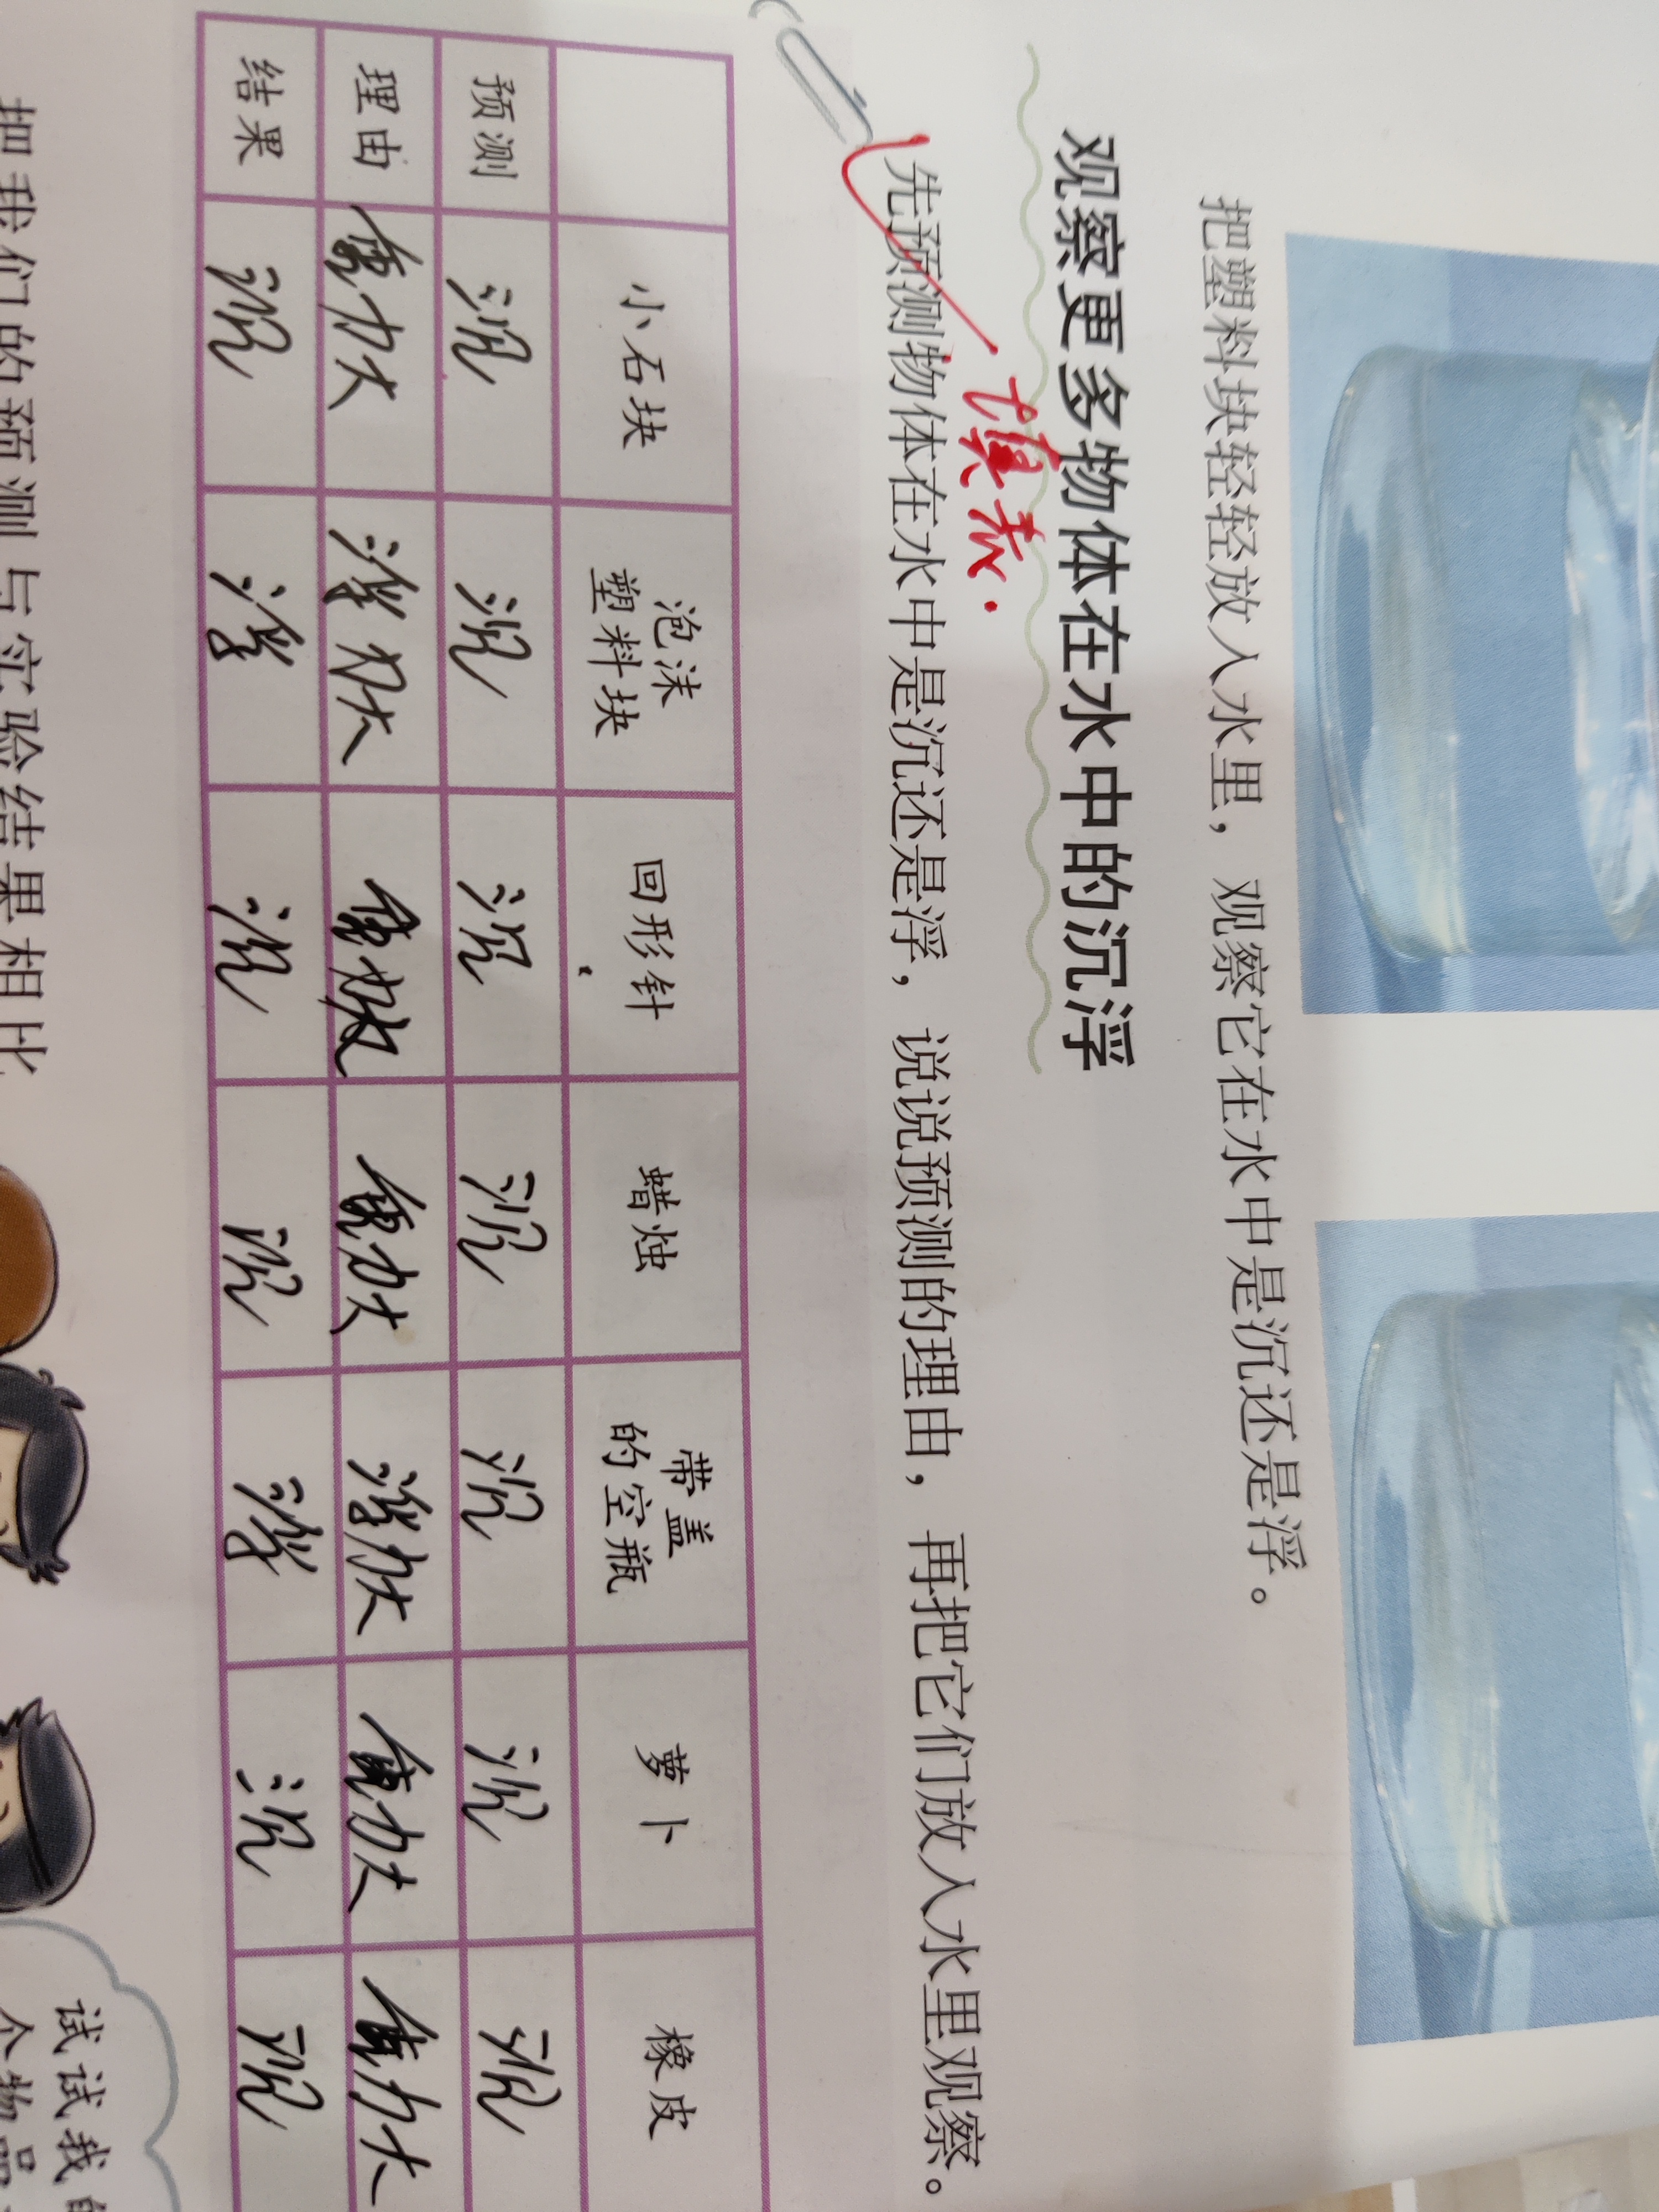 把塑料块轻轻放入水里，观察它在水中是沉还是浮。
观察更多物体在水中的沉浮
填表.
先预测物体在水中是沉还是浮，说说预测的理由，再把它们放入水里观察。
小石块 泡沫塑料块 回形针 蜡烛 带盖的空瓶 萝卜 橡皮
预测 沉 沉 沉 沉 沉 沉 沉
理由 重力大 浮力大 重力大 重力大 浮力大 重力大 重力大
结果 沉 浮 沉 沉 浮 沉 沉
把我们的预测与实验结果相比
试试我的
个物品